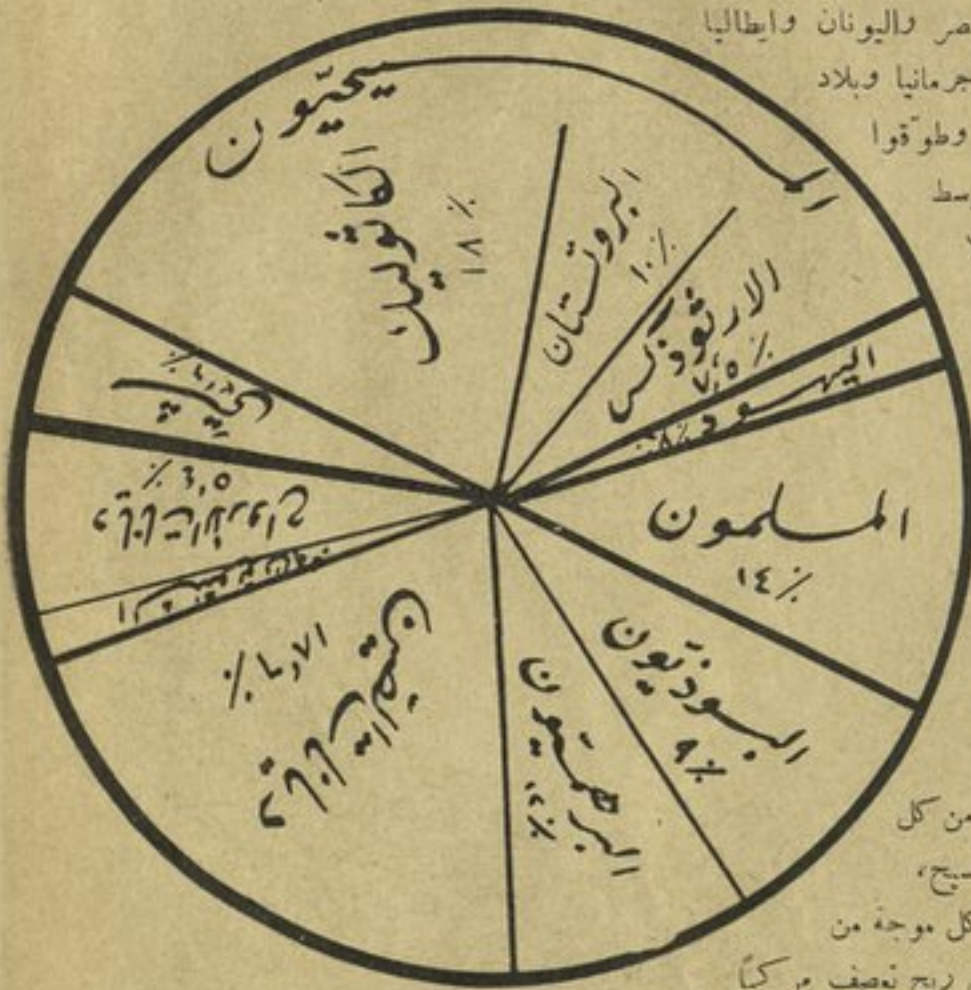 صر واليونان وايطاليا
جرمانيا وبلاد
وطوّقوا
سط
المسيحيّون
الكاثوليك
١٨ ٪
البروتستان
١٠ ٪
الارثوذكس
٧,٥ ٪
اليهود
٪
المسلمون
١٤ ٪
البوذيّون
٩ ٪
البرهميّون
٪
ديانات الصين
٪
ديانات الأرواح
٤,٥ ٪
من كل
سيح،
كل موجة من
ريح تعصف مركباً